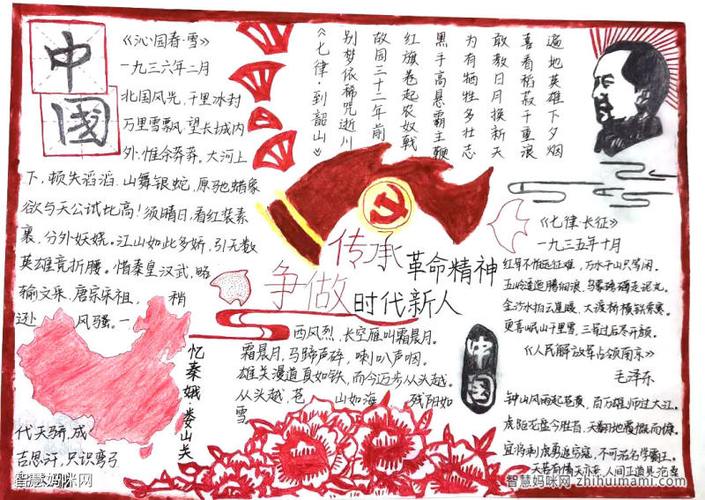 中
国
《沁园春·雪》
一九三六年二月
北国风光，千里冰封
万里雪飘，望长城内
外，惟余莽莽，大河上
下，顿失滔滔。山舞银蛇，原驰蜡象
欲与天公试比高！须晴日，看红装素
裹，分外妖娆。江山如此多娇，引无数
英雄竞折腰。惜秦皇汉武，略
输文采，唐宗宋祖，稍
逊 风骚。一
代天骄，成
吉思汗，只识弯弓
《七律·到韶山》
别梦依稀咒逝川
故园三十二年前
红旗卷起农奴戟
黑手高悬霸主鞭
为有牺牲多壮志
敢教日月换新天
喜看稻菽千重浪
遍地英雄下夕烟
传承革命精神
争做时代新人
忆秦娥 娄山关
西风烈，长空雁叫霜晨月。
霜晨月，马蹄声碎，喇叭声咽。
雄关漫道真如铁，而今迈步从头越。
从头越，苍 山如海， 残阳如
雪
中国
《七律·长征》
一九三五年十月
红军不怕远征难，万水千山只等闲。
五岭逶迤腾细浪，乌蒙磅礴走泥丸。
金沙水拍云崖暖，大渡桥横铁索寒。
更喜岷山千里雪，三军过后尽开颜。
《人民解放军占领南京》
毛泽东
钟山风雨起苍黄，百万雄师过大江。
虎踞龙盘今胜昔，天翻地覆慨而慷。
宜将剩勇追穷寇，不可沽名学霸王。
天若有情天亦老，人间正道是沧桑
智慧妈咪网
智慧妈咪网 zhihuimami.com